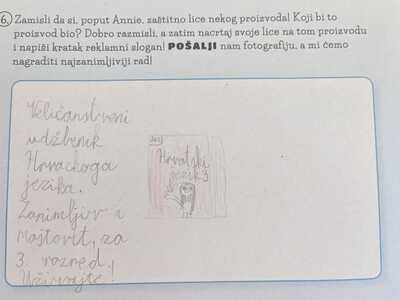 6. Zamisli da si, poput Annie, zaštitno lice nekog proizvoda! Koji bi to
proizvod bio? Dobro razmisli, a zatim nacrtaj svoje lice na tom proizvodu
i napiši kratak reklamni slogan! POŠALJI nam fotografiju, a mi ćemo
nagraditi najzanimljiviji rad!
Veličanstveni
udžbenik
Hrvackoga
jezika.
Zanimljiv i
majtovit, za
3. razred.
Uživajte!
Hrvatski
jezik 3